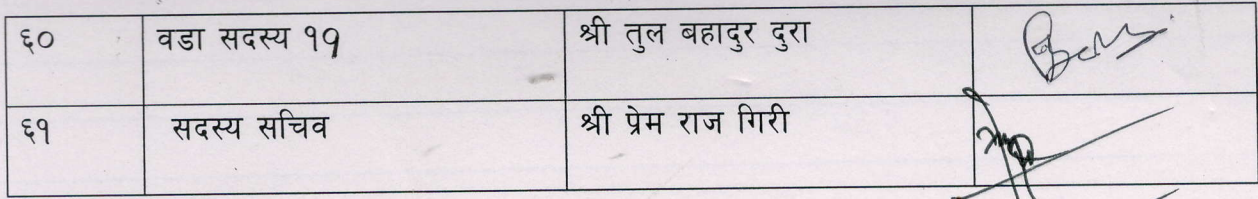 ६० वडा सदस्य ११ श्री तुल बहादुर दुरा
६१ सदस्य सचिव श्री प्रेम राज गिरी